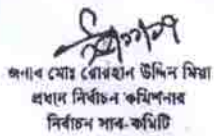 জনাব মোঃ বোরহান উদ্দিন মিয়া
প্রধান নির্বাচন কমিশনার
নির্বাচন সাব-কমিটি